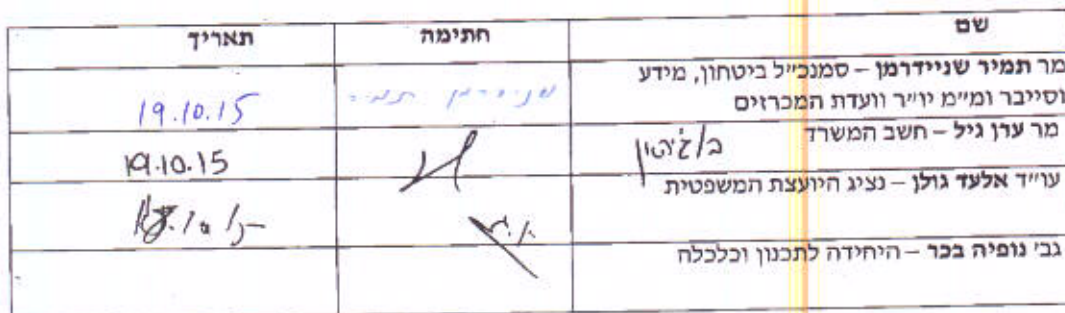 שם חתימה תאריך
מר תמיר שניידרמן – סמנכ״ל ביטחון, מידע
וסייבר ומ״מ יו״ר וועדת המכרזים שניידרמן תמיר 19.10.15
מר ערן גיל – חשב המשרד 19.10.15
עו״ד אלעד גולן – נציג היועצת המשפטית
גבי נופיה בכר – היחידה לתכנון וכלכלה